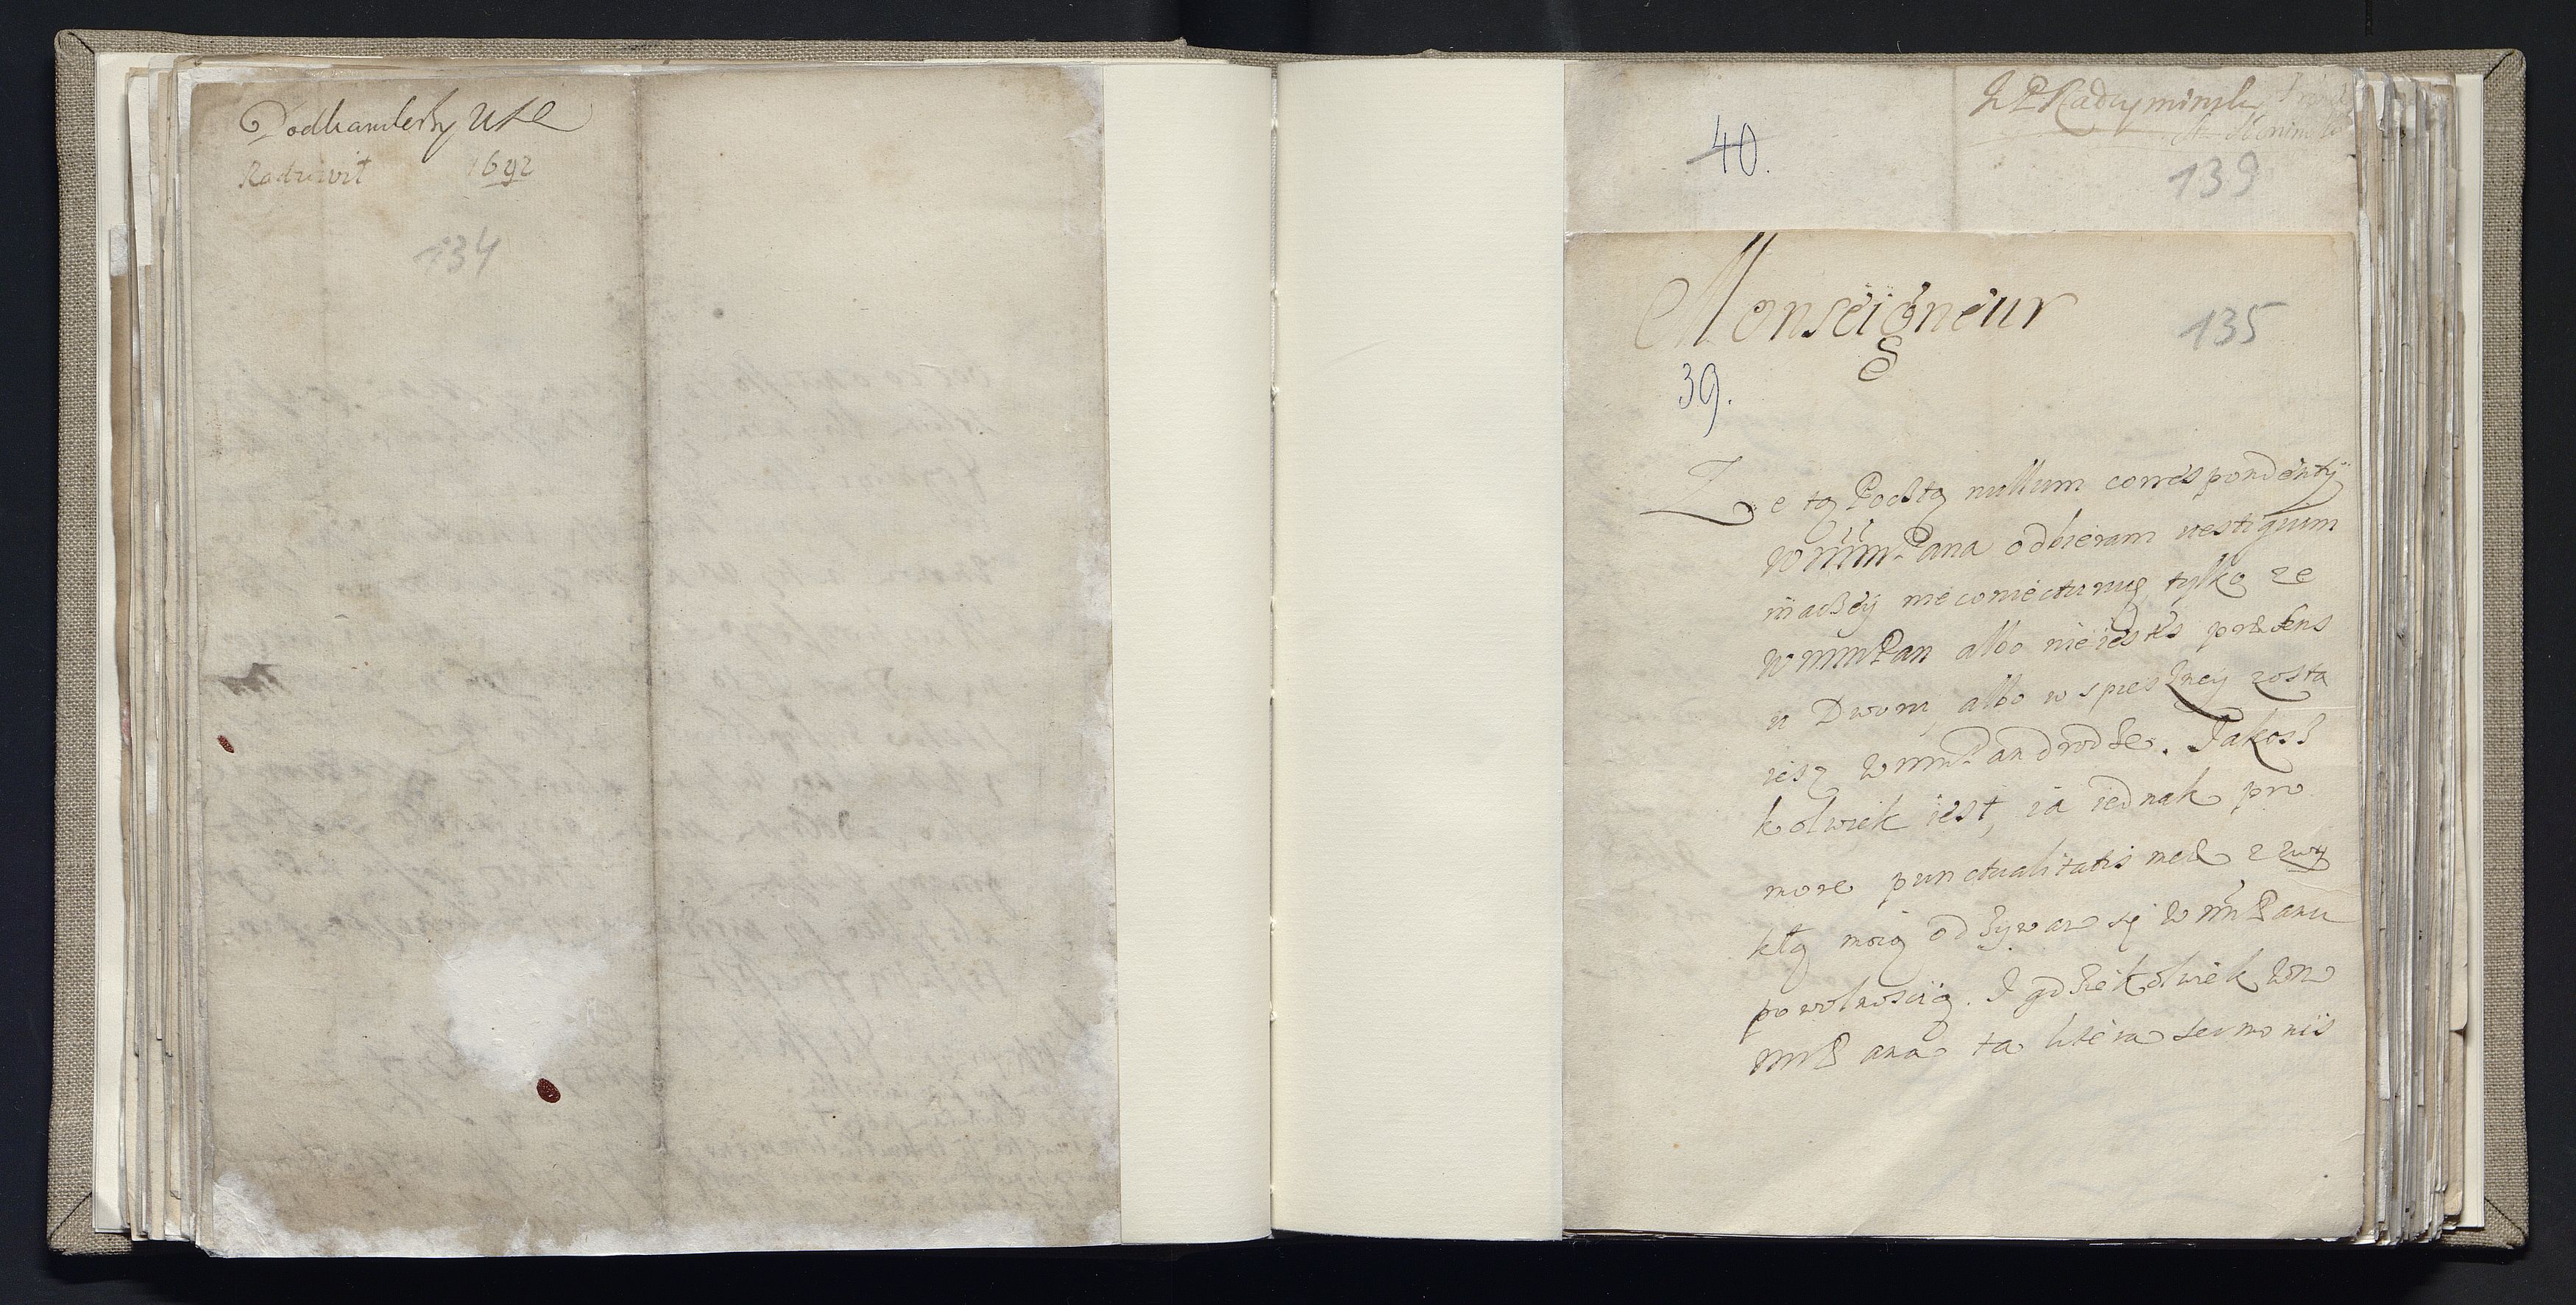 Podkanclerzy WXL
Radziwił 1692
134
JP Radzyminsky
40.
139
Monseigneur
135
39.
Ze tą Pocztą nullum correspondentÿ
WMMPana odbieram vestigium
inaczey nie coniecturuię, tylko ze
WMMPan albo nie iestes præsens
u Dworu, albo w spieszney zosta
iesz WMMPan drodze. Jakosz
kolwiek iest, ia iednak pro
more punctualitatis meæ z zwy
kłą moią odzywam się WMMPanu
powolnoscią. I gdziekolwiek Wm
MMPana ta litera sermonis